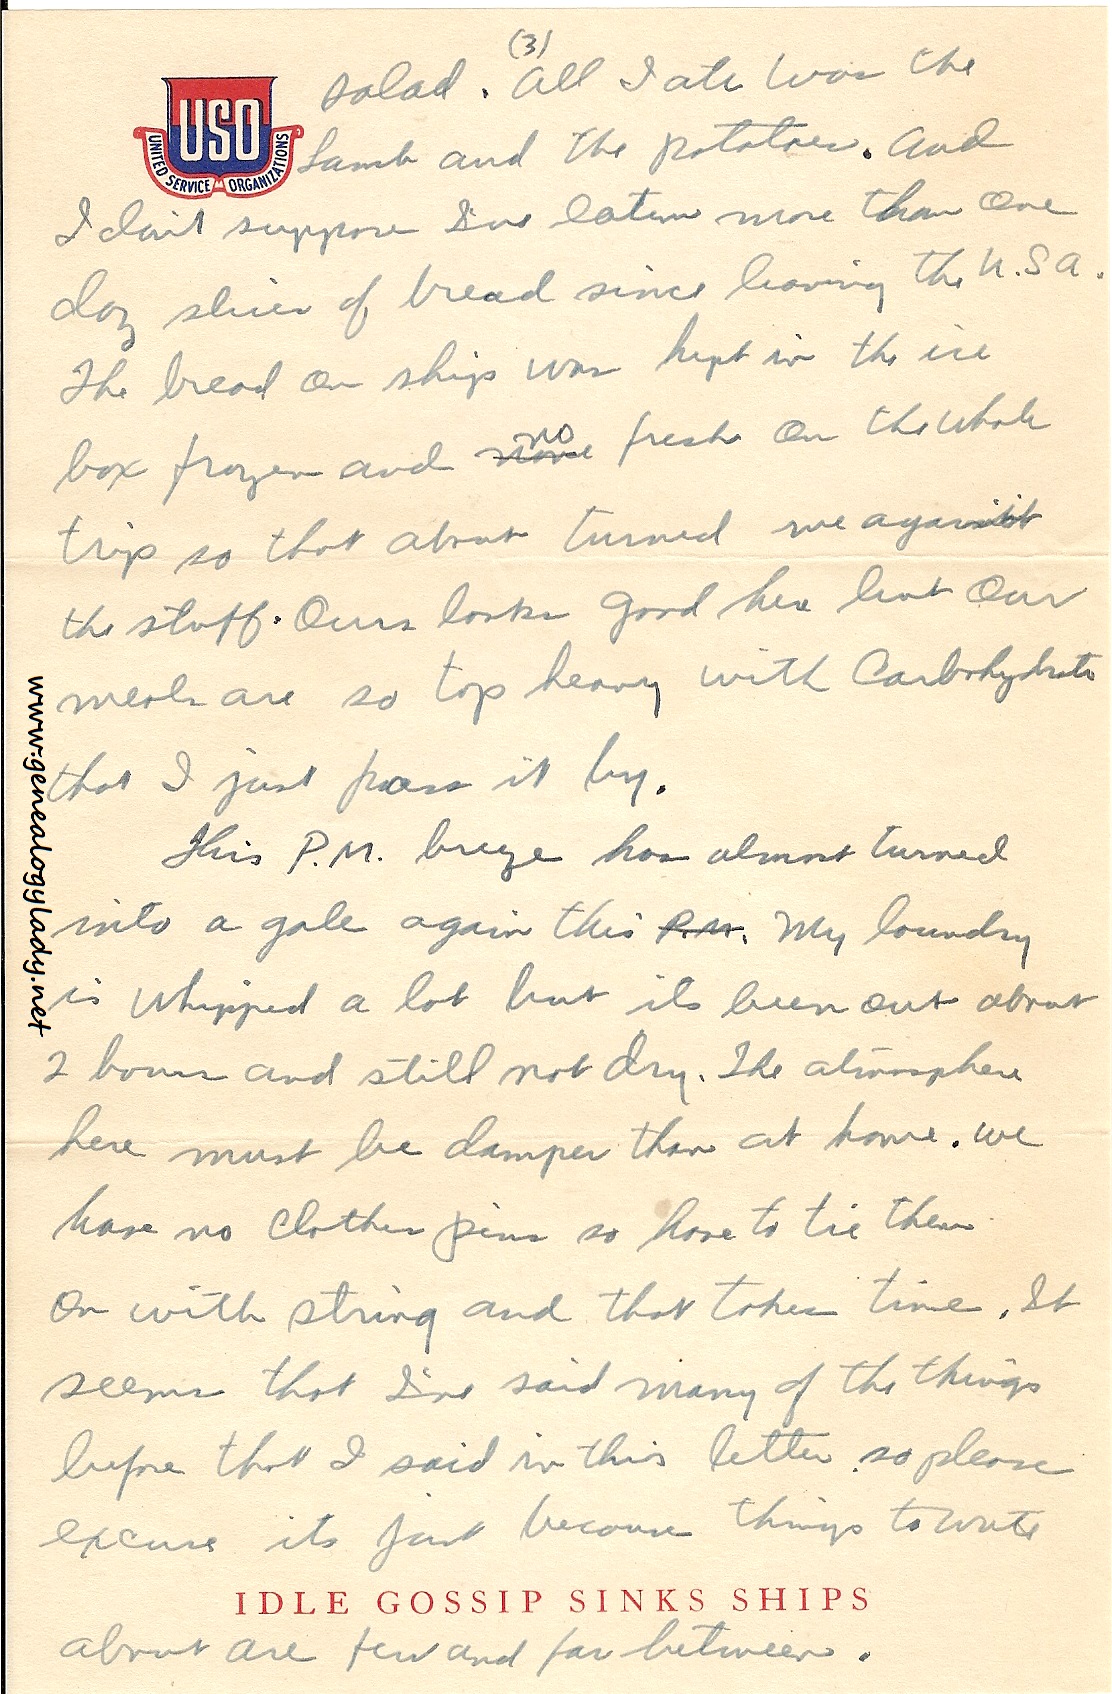 (3)
USO
UNITED SERVICE ORGANIZATIONS
salad. All I ate was the
Lamb and the potatoes. And
I don't suppose I've eaten more than one
doz slices of bread since leaving the U.S.A.
The bread on ship was kept in the ice
box frozen and none no fresh on the whole
trip so that about turned me against
the stuff. Ours looks good here but our
meals are so top heavy with Carbohydrate
that I just pass it by.
This P.M. breeze has almost turned
into a gale again this P.M. My laundry
is whipped a lot but its been out about
2 hours and still not dry. The atmosphere
here must be damper than at home. We
have no clothes pins so have to tie them
on with string and that takes time. It
seems that I've said many of the things
before that I said in this letter so please
excuse its just because things to write
IDLE GOSSIP SINKS SHIPS
about are few and far between.
www.genealogylady.net